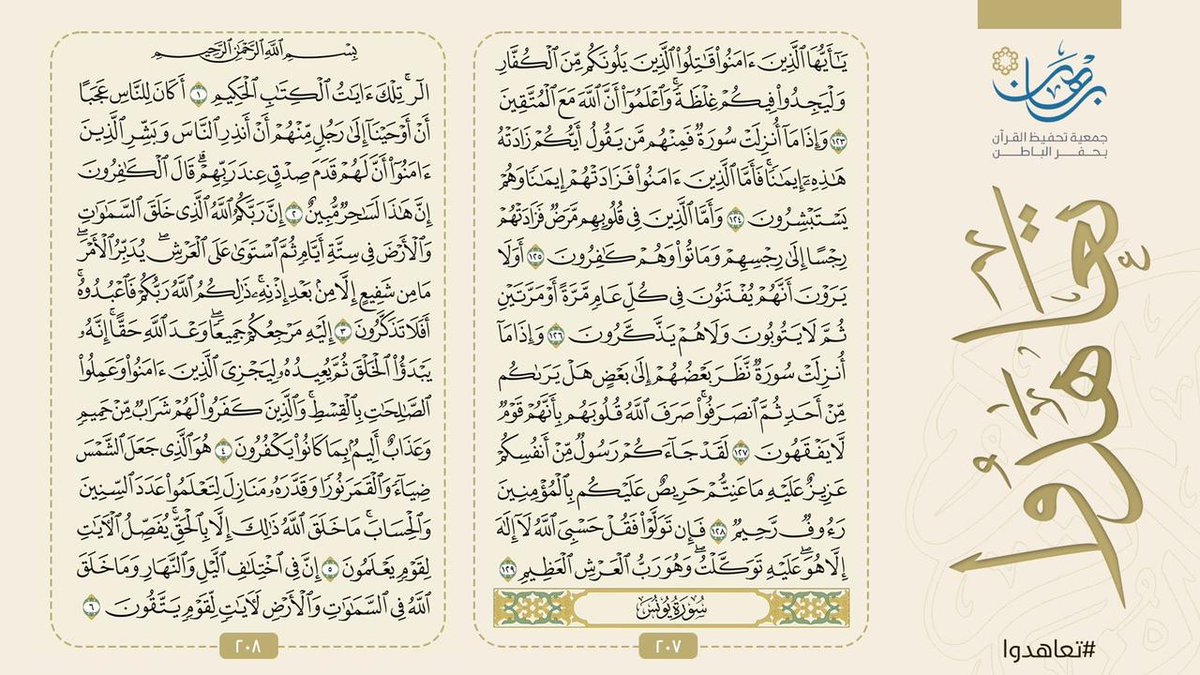 برهان
جمعية تحفيظ القرآن
بحفر الباطن
تعاهدوا
#تعاهدوا
يَٰٓأَيُّهَا ٱلَّذِينَ ءَامَنُوا۟ قَٰتِلُوا۟ ٱلَّذِينَ يَلُونَكُم مِّنَ ٱلْكُفَّارِ
وَلْيَجِدُوا۟ فِيكُمْ غِلْظَةً ۚ وَٱعْلَمُوٓا۟ أَنَّ ٱللَّهَ مَعَ ٱلْمُتَّقِينَ
١٢٣ وَإِذَا مَآ أُنزِلَتْ سُورَةٌ فَمِنْهُم مَّن يَقُولُ أَيُّكُمْ زَادَتْهُ
هَٰذِهِۦٓ إِيمَٰنًا ۚ فَأَمَّا ٱلَّذِينَ ءَامَنُوا۟ فَزَادَتْهُمْ إِيمَٰنًا وَهُمْ
يَسْتَبْشِرُونَ ١٢٤ وَأَمَّا ٱلَّذِينَ فِى قُلُوبِهِم مَّرَضٌ فَزَادَتْهُمْ
رِجْسًا إِلَىٰ رِجْسِهِمْ وَمَاتُوا۟ وَهُمْ كَٰفِرُونَ ١٢٥ أَوَلَا
يَرَوْنَ أَنَّهُمْ يُفْتَنُونَ فِى كُلِّ عَامٍ مَّرَّةً أَوْ مَرَّتَيْنِ
ثُمَّ لَا يَتُوبُونَ وَلَا هُمْ يَذَّكَّرُونَ ١٢٦ وَإِذَا مَآ
أُنزِلَتْ سُورَةٌ نَّظَرَ بَعْضُهُمْ إِلَىٰ بَعْضٍ هَلْ يَرَىٰكُم
مِّنْ أَحَدٍ ثُمَّ ٱنصَرَفُوا۟ ۚ صَرَفَ ٱللَّهُ قُلُوبَهُم بِأَنَّهُمْ قَوْمٌ
لَّا يَفْقَهُونَ ١٢٧ لَقَدْ جَآءَكُمْ رَسُولٌ مِّنْ أَنفُسِكُمْ
عَزِيزٌ عَلَيْهِ مَا عَنِتُّمْ حَرِيصٌ عَلَيْكُم بِٱلْمُؤْمِنِينَ
رَءُوفٌ رَّحِيمٌ ١٢٨ فَإِن تَوَلَّوْا۟ فَقُلْ حَسْبِىَ ٱللَّهُ لَآ إِلَٰهَ
إِلَّا هُوَ ۖ عَلَيْهِ تَوَكَّلْتُ ۖ وَهُوَ رَبُّ ٱلْعَرْشِ ٱلْعَظِيمِ ١٢٩
سُورَةُ يُونُسَ
٢٠٧
بِسْمِ ٱللَّهِ ٱلرَّحْمَٰنِ ٱلرَّحِيمِ
الٓر ۚ تِلْكَ ءَايَٰتُ ٱلْكِتَٰبِ ٱلْحَكِيمِ ١ أَكَانَ لِلنَّاسِ عَجَبًا
أَنْ أَوْحَيْنَآ إِلَىٰ رَجُلٍ مِّنْهُمْ أَنْ أَنذِرِ ٱلنَّاسَ وَبَشِّرِ ٱلَّذِينَ
ءَامَنُوٓا۟ أَنَّ لَهُمْ قَدَمَ صِدْقٍ عِندَ رَبِّهِمْ ۗ قَالَ ٱلْكَٰفِرُونَ
إِنَّ هَٰذَا لَسَٰحِرٌ مُّبِينٌ ٢ إِنَّ رَبَّكُمُ ٱللَّهُ ٱلَّذِى خَلَقَ ٱلسَّمَٰوَٰتِ
وَٱلْأَرْضَ فِى سِتَّةِ أَيَّامٍ ثُمَّ ٱسْتَوَىٰ عَلَى ٱلْعَرْشِ ۖ يُدَبِّرُ ٱلْأَمْرَ ۖ
مَا مِن شَفِيعٍ إِلَّا مِنۢ بَعْدِ إِذْنِهِۦ ۚ ذَٰلِكُمُ ٱللَّهُ رَبُّكُمْ فَٱعْبُدُوهُ ۚ
أَفَلَا تَذَكَّرُونَ ٣ إِلَيْهِ مَرْجِعُكُمْ جَمِيعًا ۖ وَعْدَ ٱللَّهِ حَقًّا ۚ إِنَّهُۥ
يَبْدَؤُا۟ ٱلْخَلْقَ ثُمَّ يُعِيدُهُۥ لِيَجْزِىَ ٱلَّذِينَ ءَامَنُوا۟ وَعَمِلُوا۟
ٱلصَّٰلِحَٰتِ بِٱلْقِسْطِ ۚ وَٱلَّذِينَ كَفَرُوا۟ لَهُمْ شَرَابٌ مِّنْ حَمِيمٍ
وَعَذَابٌ أَلِيمٌۢ بِمَا كَانُوا۟ يَكْفُرُونَ ٤ هُوَ ٱلَّذِى جَعَلَ ٱلشَّمْسَ
ضِيَآءً وَٱلْقَمَرَ نُورًا وَقَدَّرَهُۥ مَنَازِلَ لِتَعْلَمُوا۟ عَدَدَ ٱلسِّنِينَ
وَٱلْحِسَابَ ۚ مَا خَلَقَ ٱللَّهُ ذَٰلِكَ إِلَّا بِٱلْحَقِّ ۚ يُفَصِّلُ ٱلْءَايَٰتِ
لِقَوْمٍ يَعْلَمُونَ ٥ إِنَّ فِى ٱخْتِلَٰفِ ٱلَّيْلِ وَٱلنَّهَارِ وَمَا خَلَقَ
ٱللَّهُ فِى ٱلسَّمَٰوَٰتِ وَٱلْأَرْضِ لَءَايَٰتٍ لِّقَوْمٍ يَتَّقُونَ ٦
٢٠٨